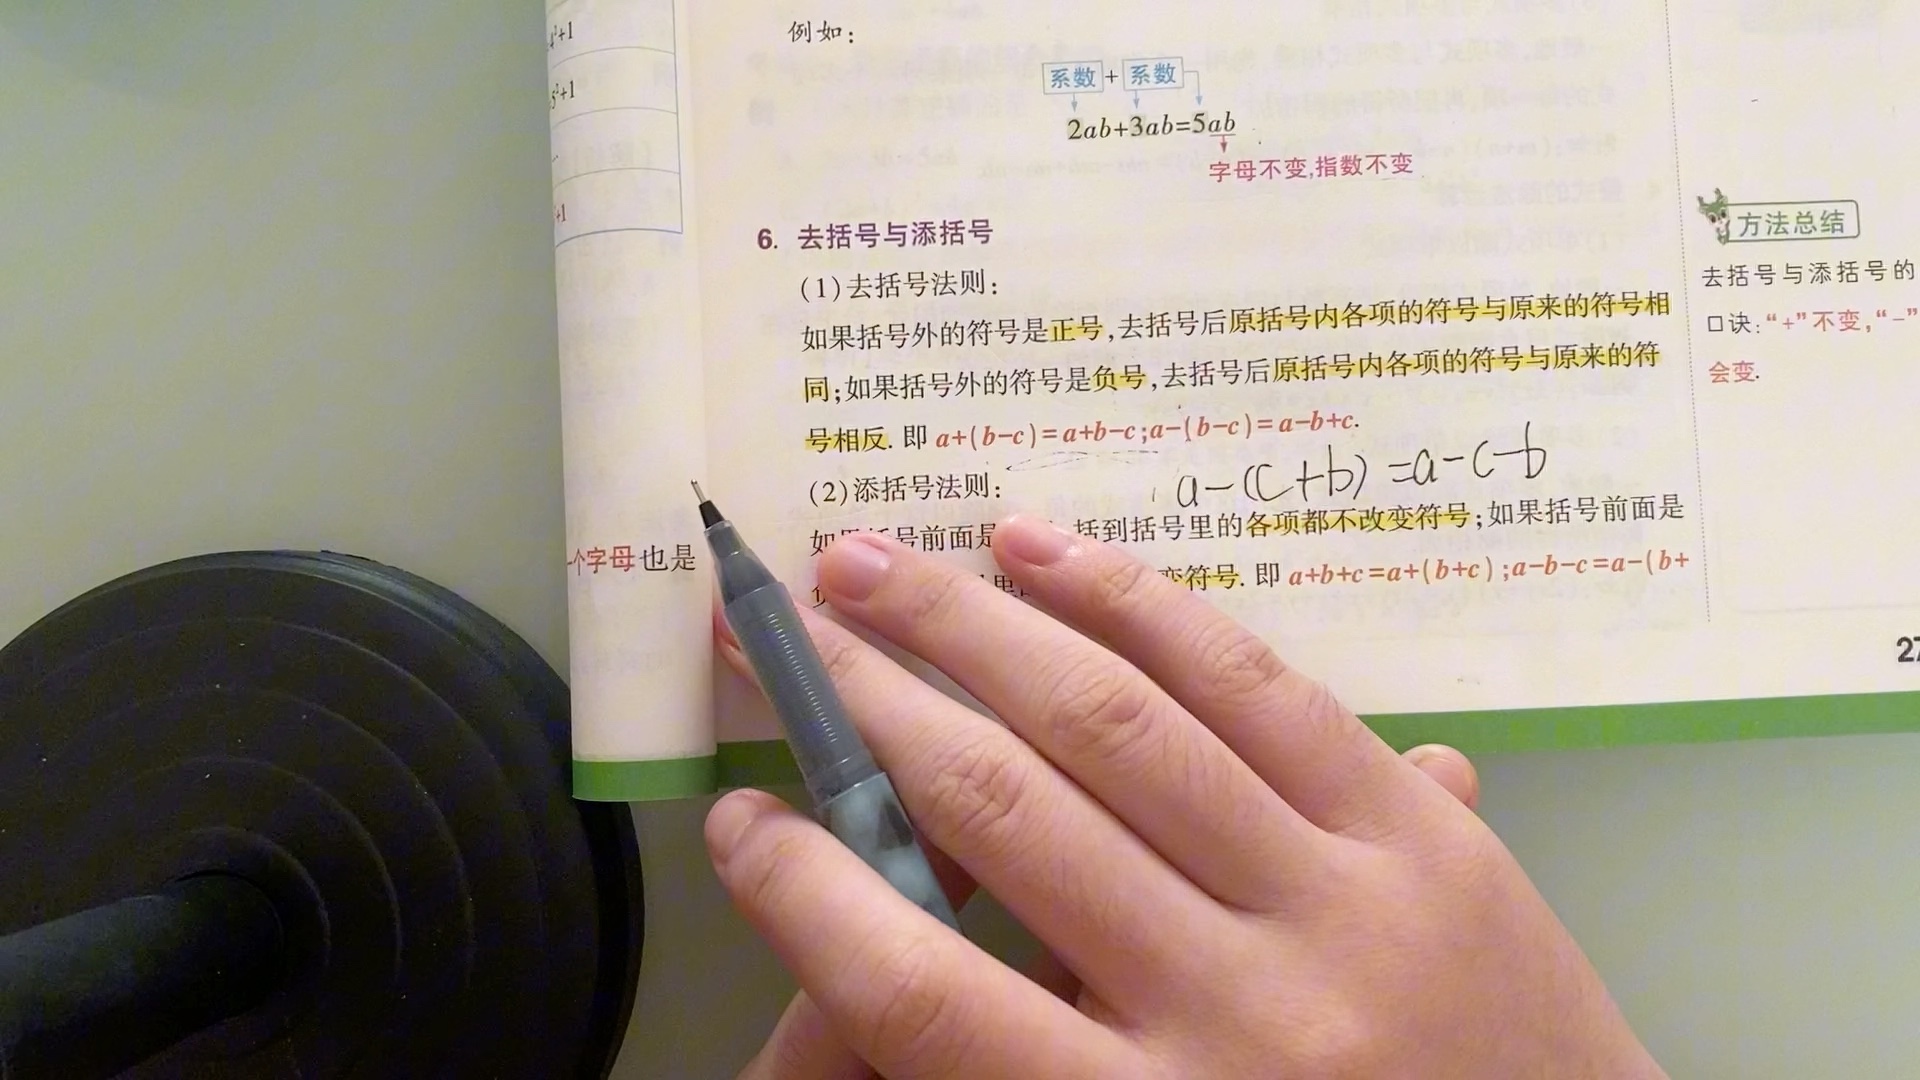 4²+1
5²+1
+1
一个字母也是
例如：
系数+系数
2ab+3ab=5ab
字母不变,指数不变
6. 去括号与添括号
(1)去括号法则：
如果括号外的符号是正号,去括号后原括号内各项的符号与原来的符号相
同;如果括号外的符号是负号,去括号后原括号内各项的符号与原来的符
号相反. 即 a+(b-c)=a+b-c;a-(b-c)=a-b+c.
a-(c+b)=a-c-b
(2)添括号法则：
号前面是 括到括号里的各项都不改变符号;如果括号前面是
变符号. 即 a+b+c=a+(b+c);a-b-c=a-(b+
方法总结
去括号与添括号的
口诀:“+”不变,“-”
会变.
27